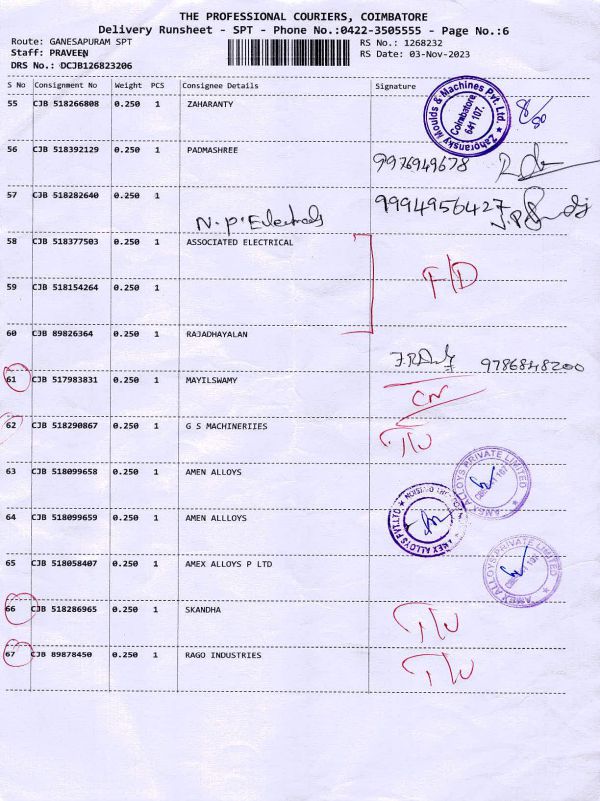 THE PROFESSIONAL COURIERS, COIMBATORE
Delivery Runsheet - SPT - Phone No.:0422-3505555 - Page No.:6
Route: GANESAPURAM SPT
RS No.: 1268232
Staff: PRAVEEN
RS Date: 03-Nov-2023
DRS No.: DCJB126823206
S No Consignment No Weight PCS Consignee Details Signature
55 CJB 518266808 0.250 1 ZAHARANTY
Zahoransky Moulds & Machines Pvt. Ltd
Coimbatore
641 107.
56 CJB 518392129 0.250 1 PADMASHREE
9976949678
57 CJB 518282640 0.250 1
N.P. Electricals
9994956427
58 CJB 518377503 0.250 1 ASSOCIATED ELECTRICAL
F/D
59 CJB 518154264 0.250 1
60 CJB 89826364 0.250 1 RAJADHAYALAN
9786848200
61 CJB 517983831 0.250 1 MAYILSWAMY
62 CJB 518290867 0.250 1 G S MACHINERIIES
63 CJB 518099658 0.250 1 AMEN ALLOYS
ALLOYS PRIVATE LIMITED
64 CJB 518099659 0.250 1 AMEN ALLLOYS
AMEX ALLOYS PVT.LTD
65 CJB 518058407 0.250 1 AMEX ALLOYS P LTD
AMEX ALLOYS PRIVATE LIMITED
66 CJB 518286965 0.250 1 SKANDHA
67 CJB 89878450 0.250 1 RAGO INDUSTRIES